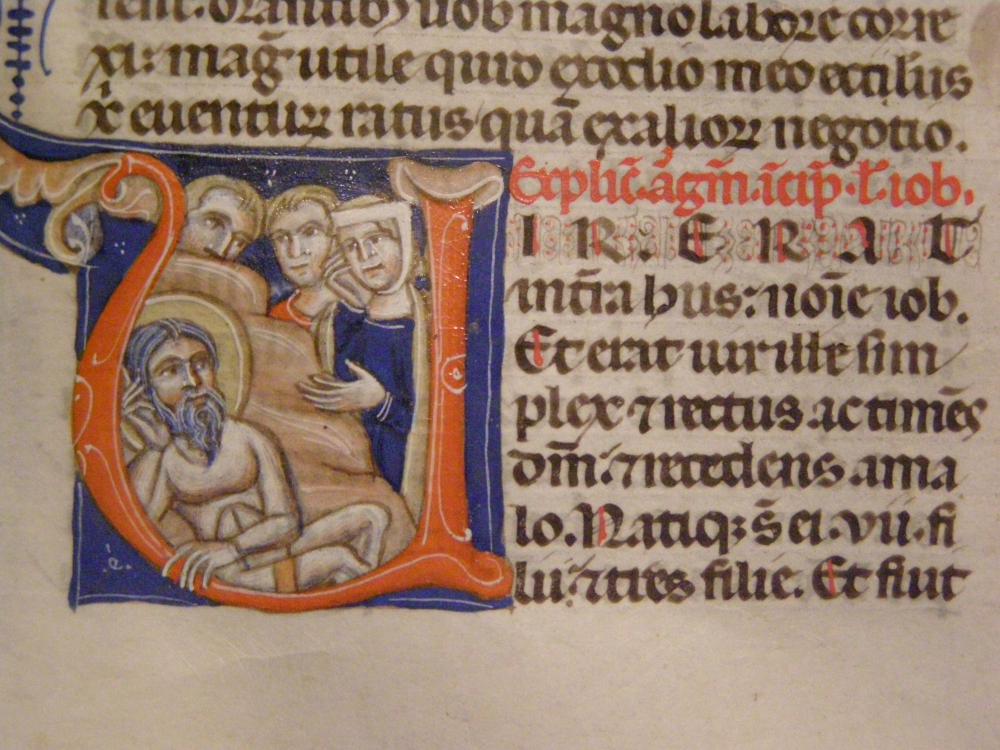 orantibꝫ uob magno labore corre
xi: mag̃ utile quid exoclio meo eccliis
x̃ euenturꝝ ratus quã exalioꝝ negotio.
Explic̃. .ĩcip̃. ł. iob.
U I R E R A T
intr̃a hus: noĩe iob.
Et erat uir ille sim
plex ⁊ rectus ac timẽs
dm̃: ⁊ recedens ama
lo. Natiqꝫ s̃ ei. vii. fi
lii: ⁊ tres filie. Et fiut